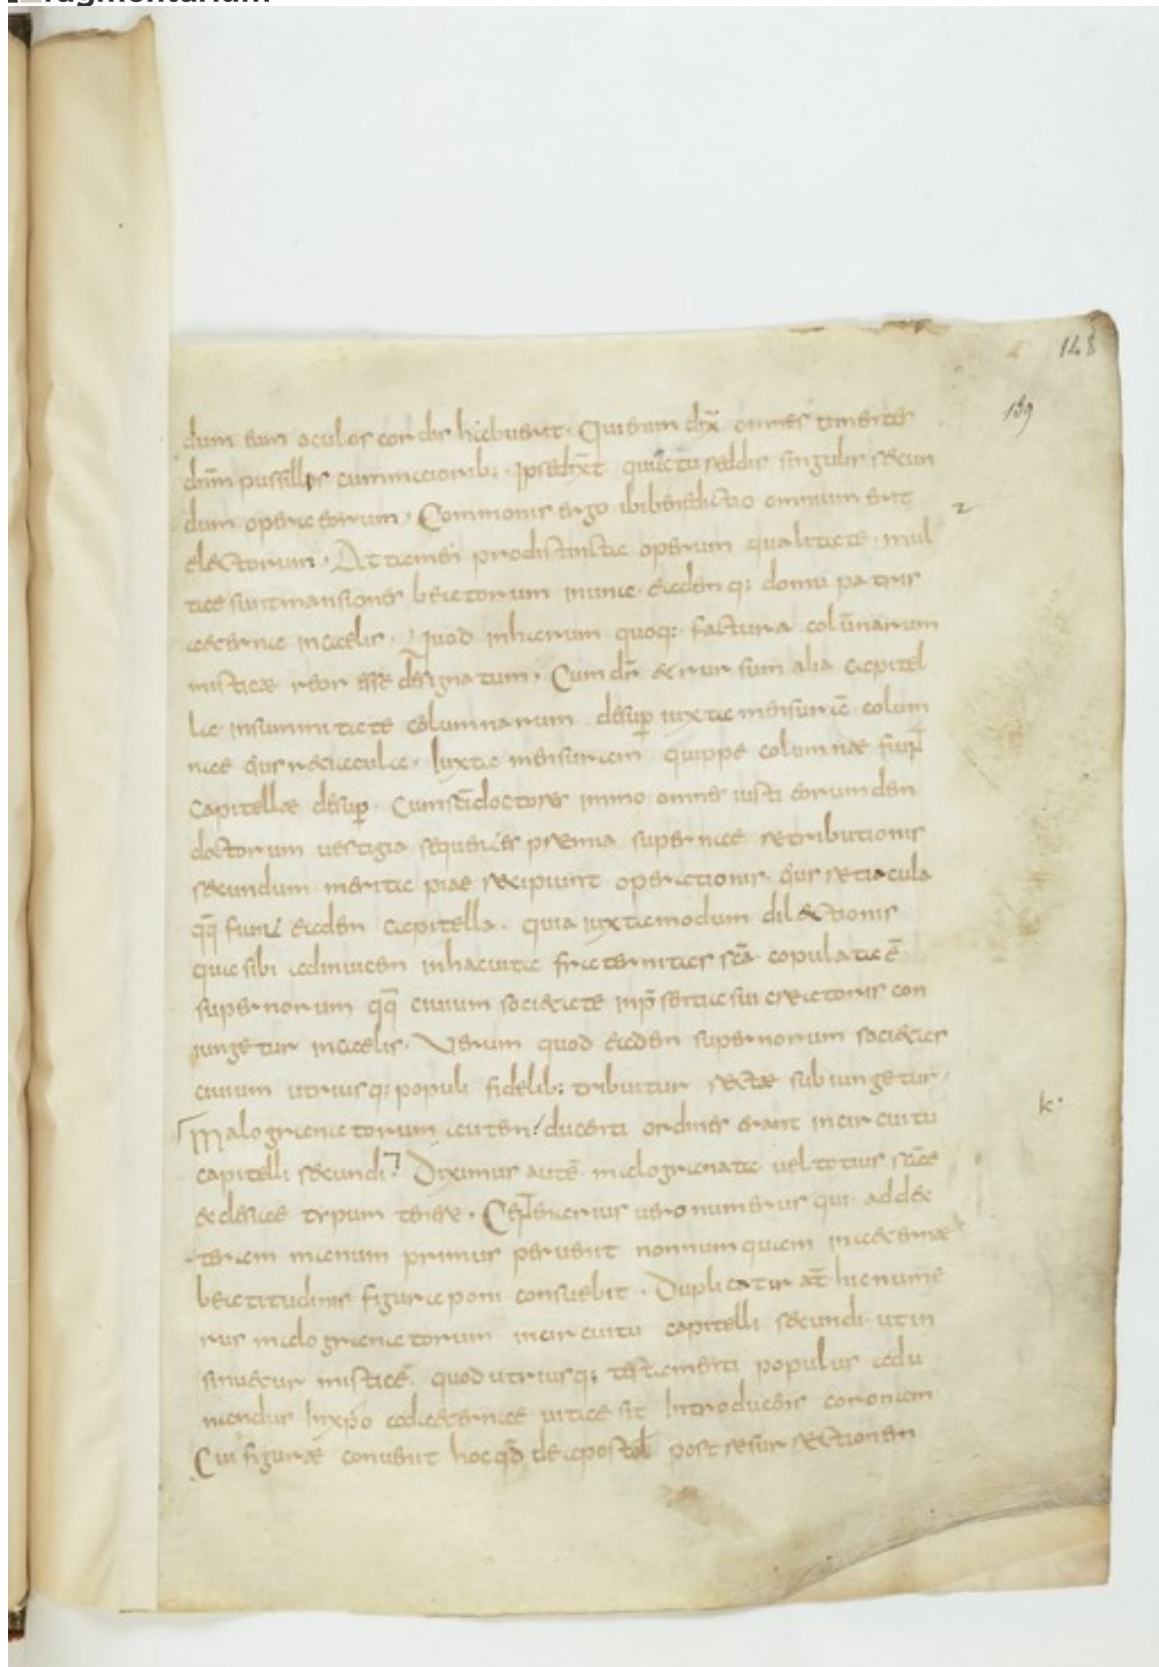 fragmentarium
148
139
dum eum oculos cordis habuerit. Qui enim dix̄ omnes timentes
dn̄m pussillos cum maioribꝫ. ipse dix̄ et quia tu reddis singulis secun
dum opera eorum. Commonis ergo ibi benedictio omnium erit
electorum. Attamen pro distinctia operum qualitate. mul
2
tae sunt mansiones beatorum in una eademq; domu patris
aeterna in caelis. Quod in harum quoq; factura colūnarum
misticae reor esse designatum. Cum dr̄ & rursum alia capitel
la in summitate columnarum desup̱ iuxta mensurā colum
nae
Iuxta mensuram quippe columnae
capitellae desup̱. Cum sc̄i doctores immo omnes iusti eorundem
doctorum vestigia sequentes premia supernae retributionis
secundum merita piae recipiunt operationis.
eadem capitella. quia iuxta modum dilectionis
quae sibi ad invicem in hac vita fraternitas sc̄a copulata ē
supernorum qq̄ civium societate in p̄sentia sui creatoris con
iungetur in caelis. Verum quod eadem supernorum societas
civium utriusq; populi fidelibꝫ tribuitur recte subiungetur.
Malogranatorum autem ducenti ordines erant in circuitu
k.
capitelli secundi. Diximus autē malogranata vel totius sc̄ae
&clesiae typum tenere. Centenarius vero numerus qui ad dex
teram manum primus pervenit non numquam in aeternae
beatitudinis figura poni consuebit. Duplicatur at̄ hic nume
rus malogranatorum in circuitu capitelli secundi. ut in
sinuetur misticē. quod utriusq; testamenti populus adu
nandus in xp̄o ad aeternae vitae sit introducens coronam
Cui figurae convenit hoc qd̄ de apostol post resurrectionem